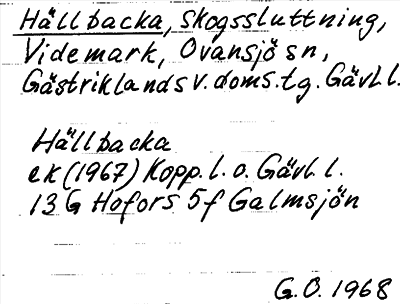 Hällbacka, skogssluttning,
Videmark, Ovansjö sn,
Gästriklands v. doms. tg. Gävl. l.
Hällbacka
ek (1967) Kopp. l. o. Gävl. l.
13 G Hofors 5f Galmsjön
G.O. 1968